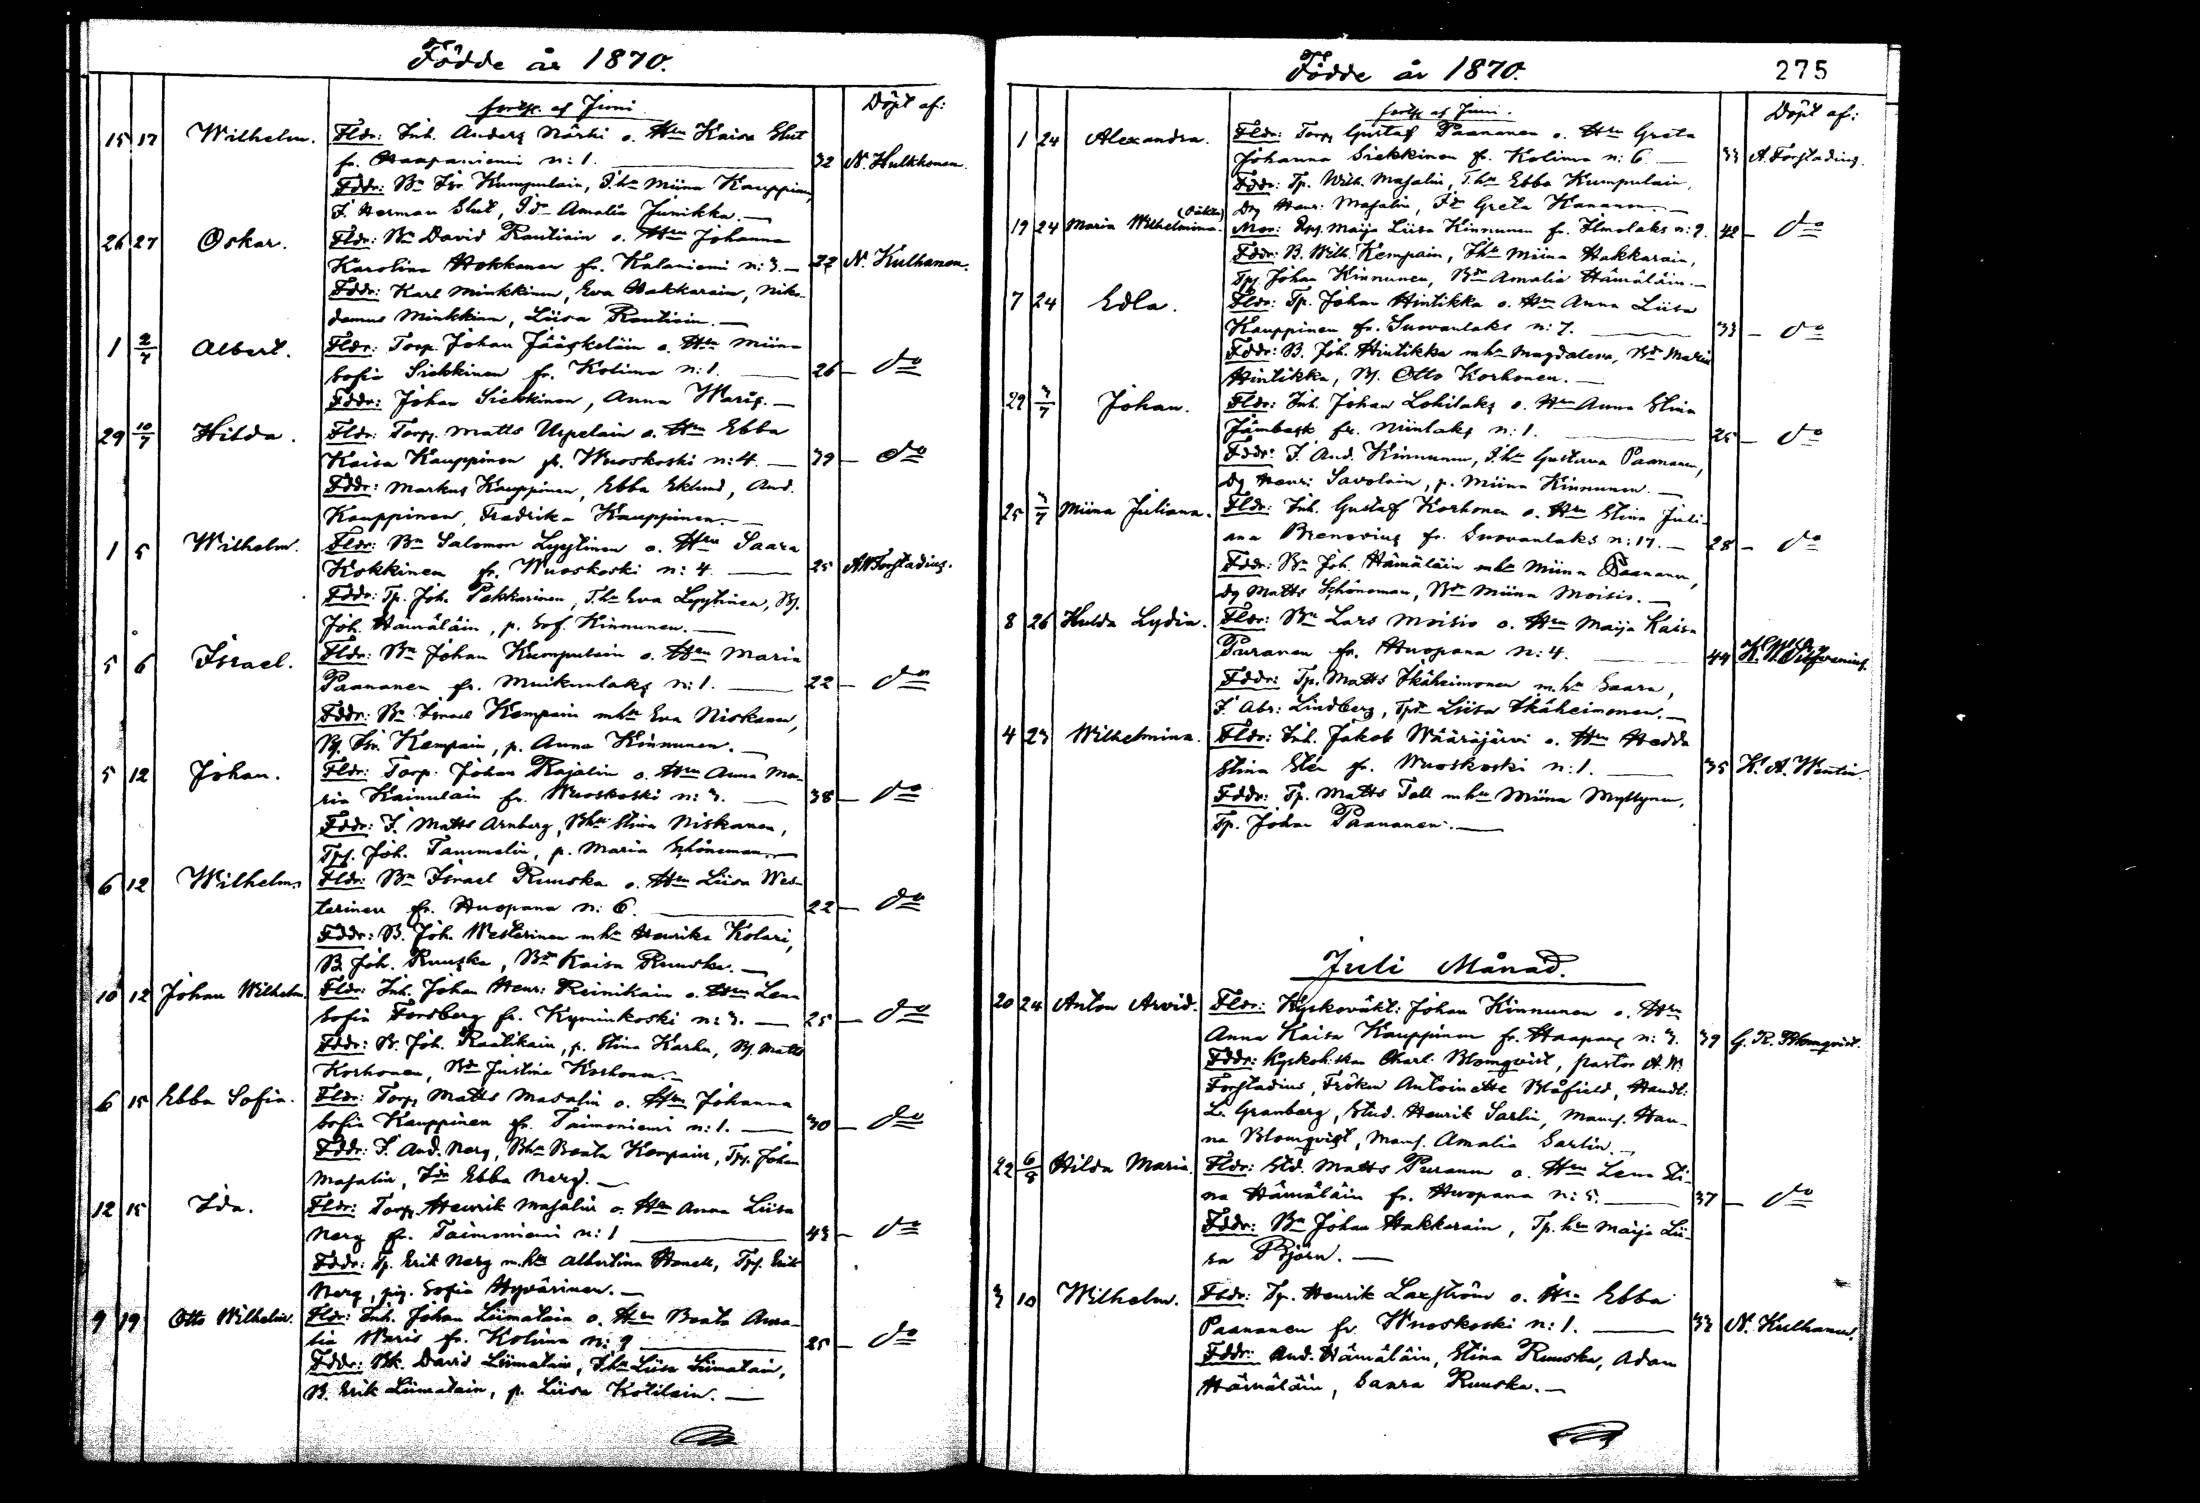 Födde år 1870.
forts. af Juni
Döpt af:
15 17 Wilhelm. Fldr: Inh. Anders Närhi o. Hru Kaisa Slut
fr. Haapaniemi n: 1. — 32 N. Kulhanen.
Fddr: Bn Isr. Kumpulain, I.hu Miina Kauppinen,
I. Herman Slut, Idr Amalia Junikka. —
26 27 Oskar. Fldr: Bn David Rautiain o. Hru Johanna
Karolina Hokkanen fr. Kalaniemi n: 3. — 22 N. Kulhanen.
Fddr: Karl Minkkinen, Eva Hakkarain, Niko-
demus Minkkinen, Liisa Rautiain. —
1 2/7 Albert. Fldr: Torp. Johan Jääskeläin o. Hru Miina
Sofia Siekkinen fr. Kolima n: 1. — 26 — do
Fddr: Johan Siekkinen, Anna Waris. —
29 10/7 Hilda. Fldr: Torp. Matts Urpelain o. Hru Ebba
Kaisa Kauppinen fr. Wuoskoski n: 4. — 39 — do
Fddr: Markus Kauppinen, Ebba Eklund, And.
Kauppinen, Fredrika Kauppinen. —
1 5 Wilhelm. Fldr: Bn Salomon Lyytinen o. Hru Saara
Kokkinen fr. Wuoskoski n: 4. — 25 A. W. Forstadius.
Fddr: Tp. Joh. Pekkarinen, T.hu Eva Lyytinen, Bs.
Joh. Hämäläin, p. Sof. Kinnunen. —
5 6 Israel. Fldr: Bn Johan Kumpulain o. Hru Maria
Paananen fr. Muikunlaks n: 1. — 22 — do
Fddr: Bn Israel Kempain mhu Eva Niskanen,
Bs. Isr. Kempain, p. Anna Kinnunen. —
5 12 Johan. Fldr: Torp. Johan Rajalin o. Hru Anna Ma-
ria Kainulain fr. Wuoskoski n: 3. — 38 — do
Fddr: I. Matts Arnberg, Bhu Stina Niskanen,
Tps. Joh. Tammelin, p. Maria Schöneman. —
6 12 Wilhelm. Fldr: Bn Israel Ruuska o. Hru Liisa Wes-
terinen fr. Huopana n: 6. — 22 — do
Fddr: B. Joh. Westerinen mhu Henrika Kolari,
B. Joh. Ruuska, Bdr Kaisa Ruuska. —
10 12 Johan Wilhelm. Fldr: Inh. Johan Henr: Reinikain o. Hru Lena
Sofia Forsberg fr. Kyminkoski n: 3. — 25 — do
Fddr: B. Joh. Raatikain, p. Stina Karhu, Bs. Matts
Korhonen, Bdr Justina Korhonen. —
6 15 Ebba Sofia. Fldr: Torp. Matts Masalin o. Hru Johanna
Sofia Kauppinen fr. Taimoniemi n: 1. — 30 — do
Fddr: I. And. Nerg, Bhu Beata Kempain, Tps. Johan
Masalin, Idr Ebba Nerg. —
12 15 Ida. Fldr: Torp. Henrik Masalin o. Hru Anna Liisa
Nerg fr. Taimoniemi n: 1 — 43 — do
Fddr: Tp. Erik Nerg m.hu Albertina Honell, Tps. Erik
Nerg, pig. Sofia Hyvärinen. —
9 19 Otto Wilhelm. Fldr: Inh. Johan Liimatain o. Hru Beata Ama-
lia Waris fr. Kolima n: 9 — 25 — do
Fddr: Bk. David Liimatain, I.hu Liisa Liimatain,
B. Erik Liimatain, p. Liisa Kotilain. —
Födde år 1870. 275
forts. af Juni.
Döpt af:
1 24 Alexandra. Fldr: Torp. Gustaf Paananen o. Hru Greta
Johanna Siekkinen fr. Kolima n: 6. — 33 A. Forstadius.
Fddr: Tp. Wilh. Masalin, T.hu Ebba Kumpulain,
Dg Henr: Masalin, Idr Greta Kananen. —
19 24 Maria Wilhelmina. (oäkta) Mor: Maija Liisa Kinnunen fr. Ilmolaks n: 9. 42 — do
Fddr: B. Wilh. Kempain, I.hu Miina Hakkarain,
Tps. Johan Kinnunen, Bdr Amalia Hämäläin. —
7 24 Edla. Fldr: Tp. Johan Hintikka o. Hru Anna Liisa
Kauppinen fr. Suovanlaks n: 7. — 33 — do
Fddr: B. Joh. Hintikka mhu Magdalena, Bdr Maria
Hintikka, Bs. Otto Korhonen. —
29 3/7 Johan. Fldr: Inh. Johan Lohilaks o. Hru Anna Stina
Jämbeck fr. Niinilaks n: 1. — 25 — do
Fddr: I. And. Kinnunen, I.hu Gustava Paananen,
Dg Henr: Savolain, p. Miina Kinnunen. —
25 3/7 Miina Juliana. Fldr: Inh. Gustaf Korhonen o. Hru Stina Juli-
ana Brenovius fr. Suovanlaks n: 17. — 28 — do
Fddr: Bn Joh. Hämäläin mhu Miina Paananen,
Dg Matts Schöneman, Bdr Miina Moisio. —
8 26 Hulda Lydia. Fldr: Bn Lars Moisio o. Hru Maija Kaisa
Puranen fr. Huopana n: 4. — 44
Fddr: Tp. Matts Ikäheimonen m.hu Saara,
I. Abr: Lindberg, Tpdr Liisa Ikäheimonen. —
4 23 Wilhelmina. Fldr: Inh. Jakob Wääräjärvi o. Hru Hedda
Stina Sten fr. Wuoskoski n: 1. — 35 K. A. Wentin.
Fddr: Tp. Matts Tall mhu Miina Myllynen,
Tp. Johan Paananen. —
Juli Månad.
20 24 Anton Arvid. Fldr: Kyrkoväkt: Johan Kinnunen o. Hru
Anna Kaisa Kauppinen fr. Haapans n: 3. 39 G. R. Blomqvist.
Fddr: Kyrkoh. Charl. Blomqvist, pastor A. W.
Forstadius, Fröken Antoinette Blåfield, Handl:
L. Granberg, Stud. Henrik Sarlin, Mams. Han-
na Blomqvist, Mams. Amalia Sarlin. —
22 6/8 Hilda Maria. Fldr: Sld. Matts Puranen o. Hru Lena Sti-
na Hämäläin fr. Huopana n: 5. — 37 — do
Fddr: Bn Johan Hakkarain, Tp. hru Maija Lii-
sa Björn. —
3 10 Wilhelm. Fldr: Tp. Henrik Laxström o. Hru Ebba
Paananen fr. Wuoskoski n: 1. — 33 N. Kulhanen.
Fddr: And. Hämäläin, Stina Ruuska, Adam
Hämäläin, Saara Ruuska. —